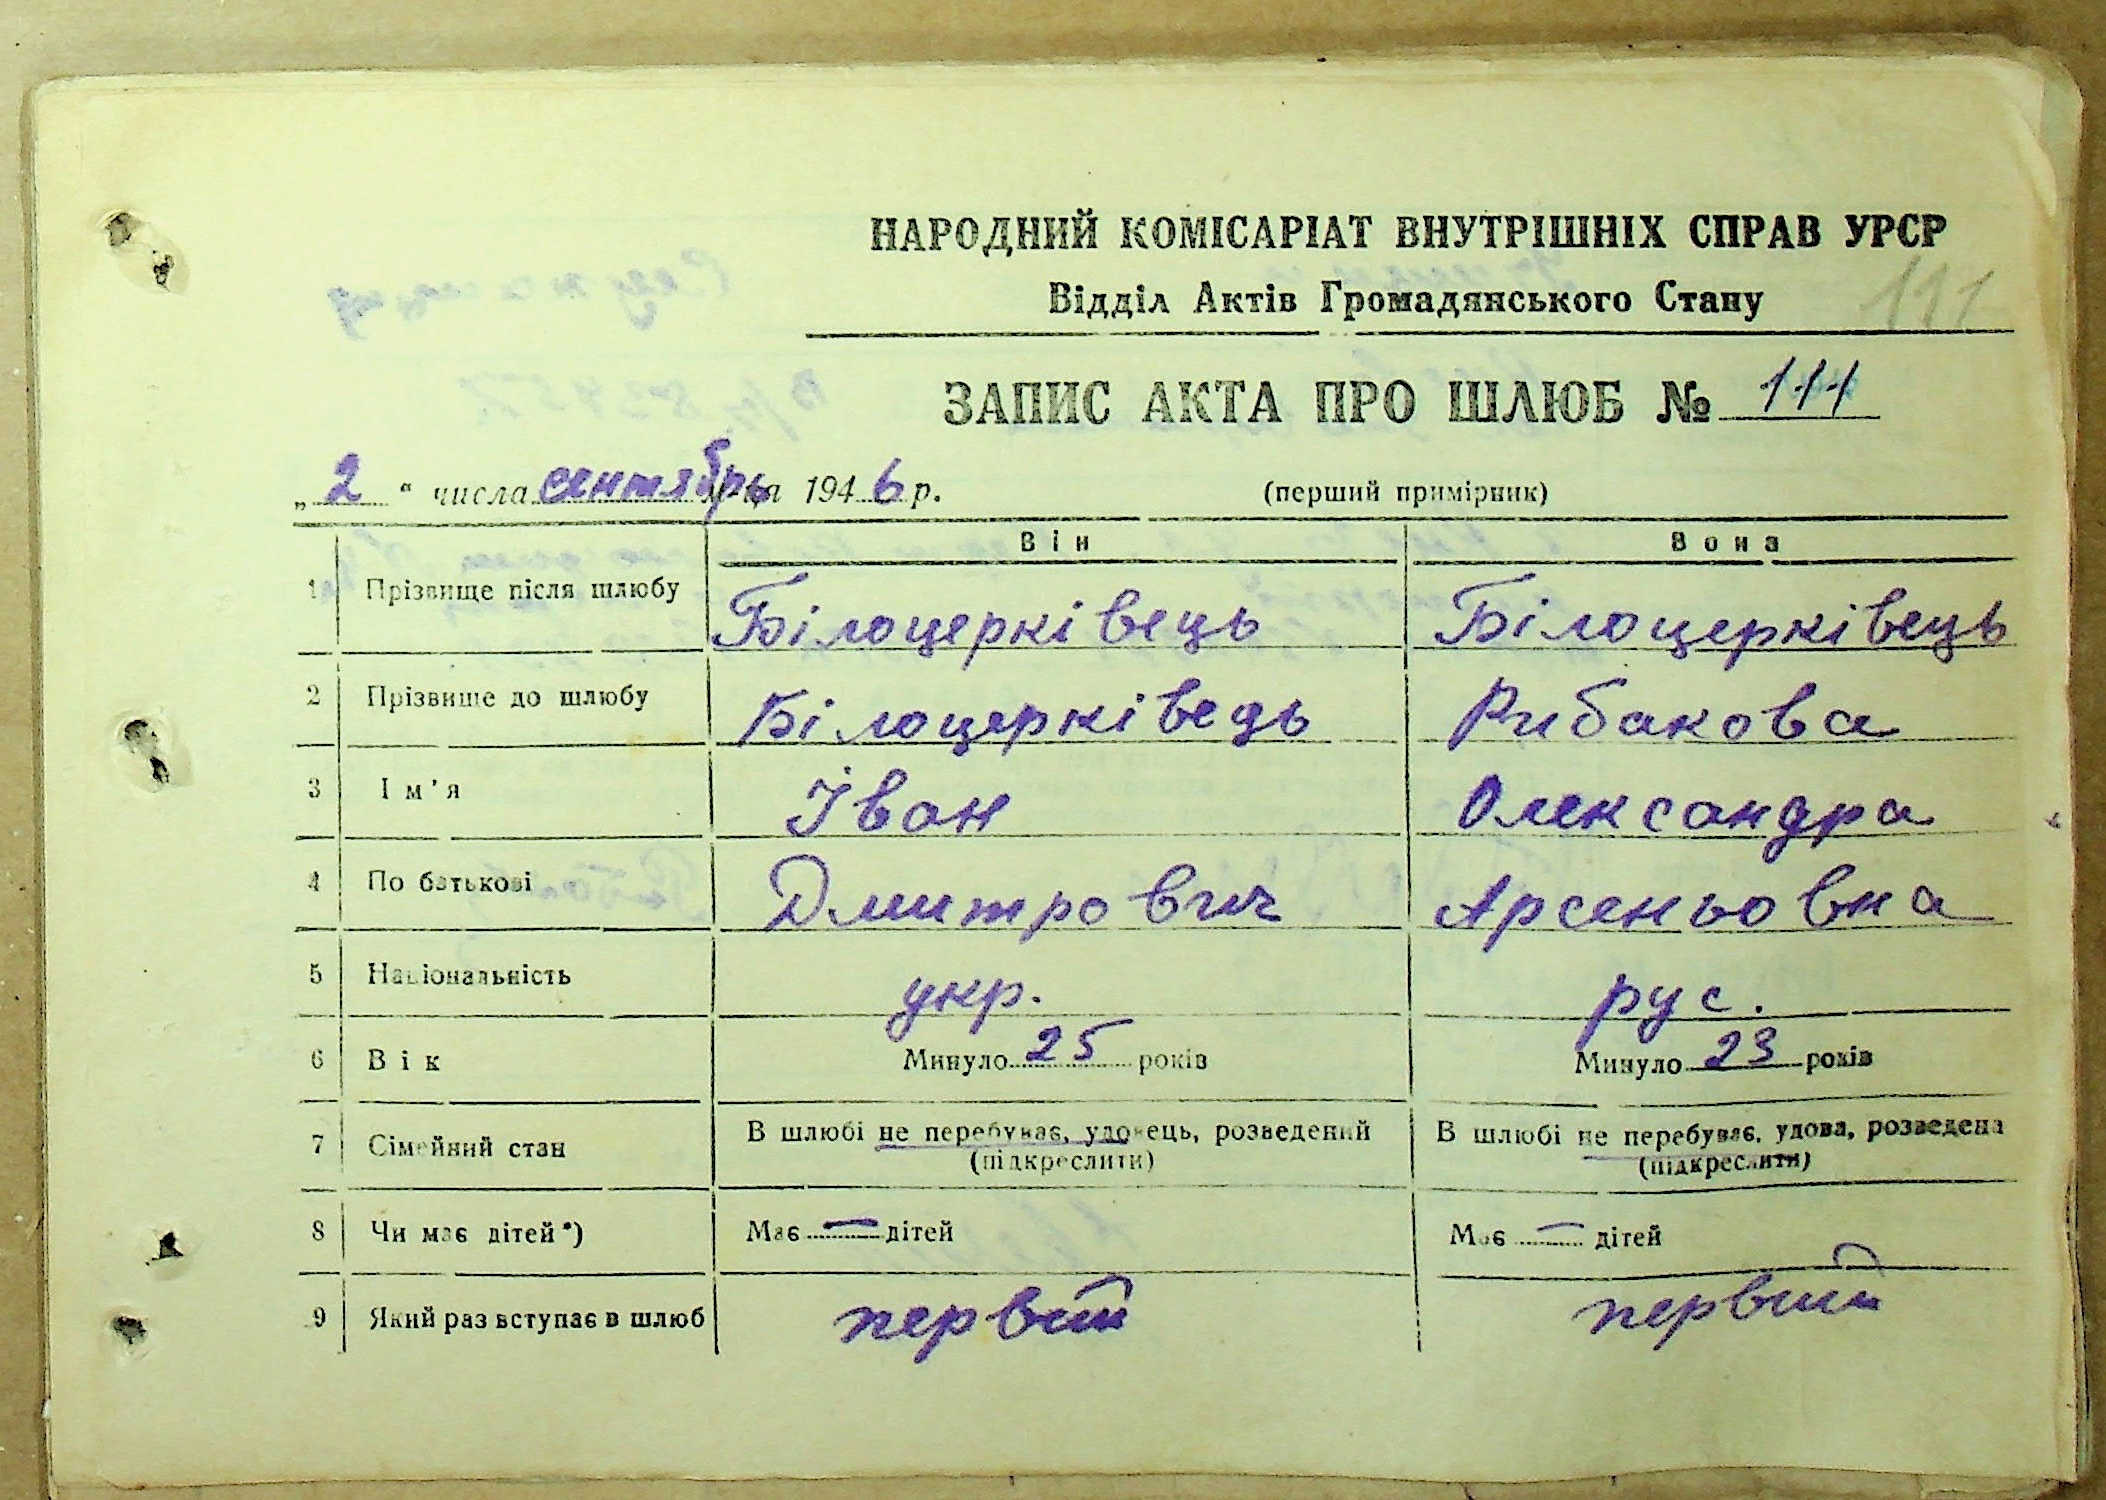 НАРОДНИЙ КОМІСАРІАТ ВНУТРІШНІХ СПРАВ УРСР
Відділ Актів Громадянського Стану
111
ЗАПИС АКТА ПРО ШЛЮБ № 111
„ 2 “ числа сентябрь 1946 р. (перший примірник)
Він Вона
1 Прізвище після шлюбу Білоцерківець Білоцерківець
2 Прізвище до шлюбу Білоцерківець Рибакова
3 Ім'я Іван Олександра
4 По батькові Дмитрович Арсеньовна
5 Національність укр. рус.
6 Вік Минуло 25 років Минуло 23 років
7 Сімейний стан В шлюбі не перебуває, удовець, розведений В шлюбі не перебуває, удова, розведена
(підкреслити) (підкреслити)
8 Чи має дітей*) Має — дітей Має — дітей
9 Який раз вступає в шлюб первий первий